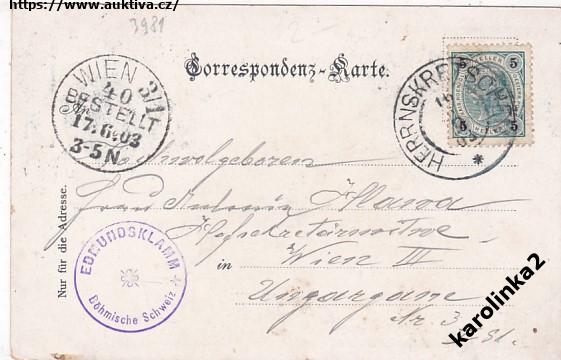 https://www.auktiva.cz/
3981
Correspondenz-Karte.
WIEN 3/1
40
BESTELLT
17.6.03
3-5N
HERRNSKRETSCHEN
5 5
5 5
Hochwolgeboren
Frau Antonia Hlawa
Hofsekretärswitwe
in Wien III
Ungargasse
Nr. 3
Nur für die Adresse.
EDMUNDSKLAMM
Böhmische Schweiz
karolinka2